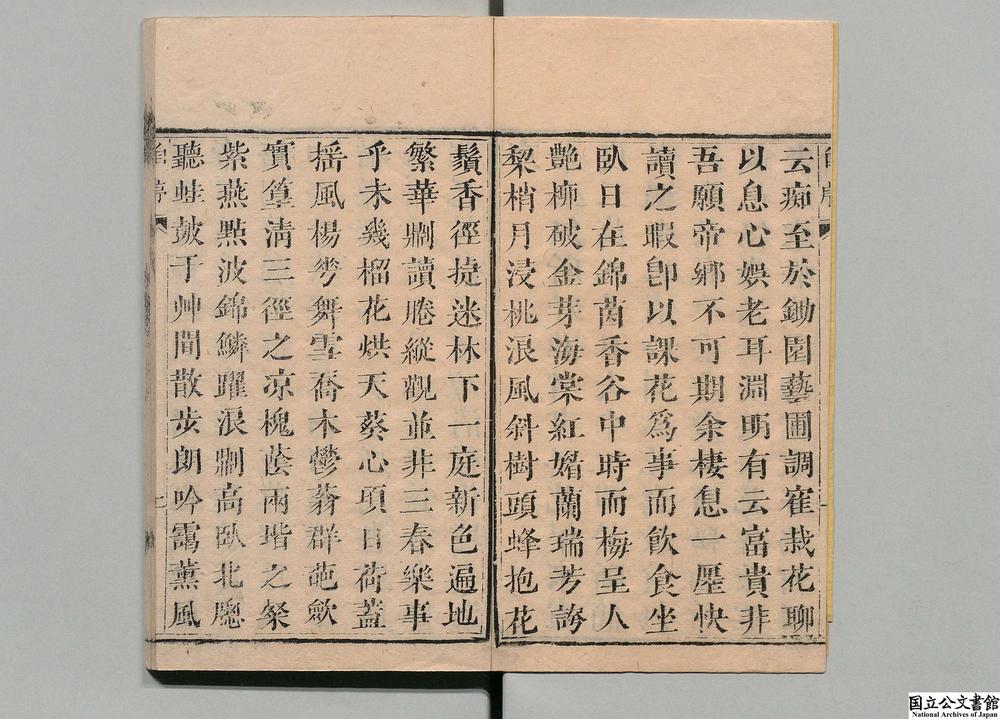 云痴至於鋤園藝圃調寉栽花聊
以息心娛老耳淵明有云富貴非
吾願帝鄉不可期余棲息一廛快
讀之暇卽以課花爲事而飲食坐
臥日在錦茵香谷中時而梅呈人
艷柳破金芽海棠紅媚蘭瑞芳誇
棃梢月浸桃浪風斜樹頭蜂抱花
鬚香徑㨗迷林下一庭新色遍地
繁華劘讀睠縱觀並非三春樂事
乎未幾榴花烘天葵心項日荷蓋
搖風楊花舞雪喬木鬱蓊群葩歛
實篁淸三徑之凉槐蔭兩堦之粲
紫燕點波錦鱗躍浪劘高臥北廳
聽蛙鼓于艸間散步朗吟霭薰風
序
序
国立公文書館
National Archives of Japan